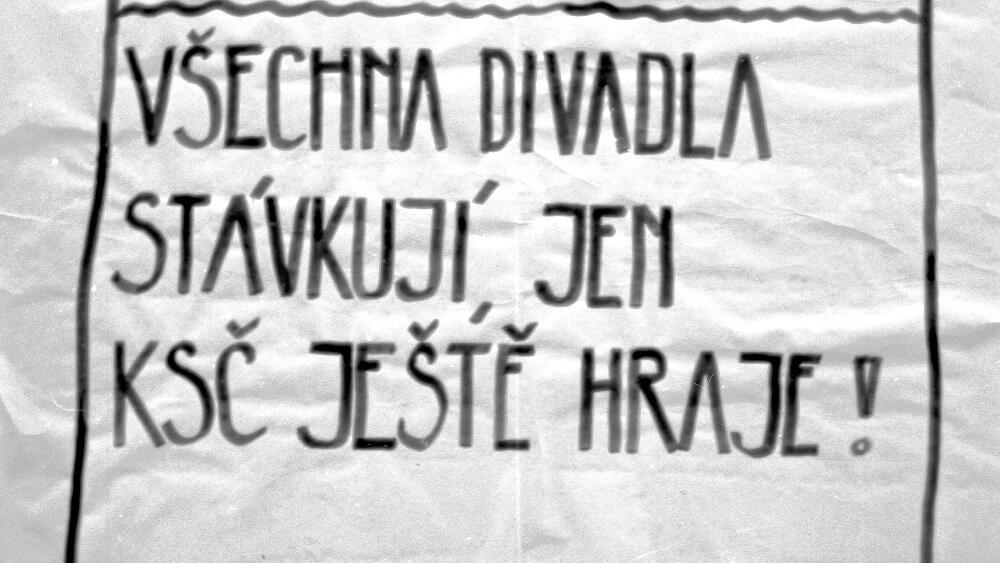 VŠECHNA DIVADLA
STÁVKUJÍ, JEN
KSČ JEŠTĚ HRAJE!